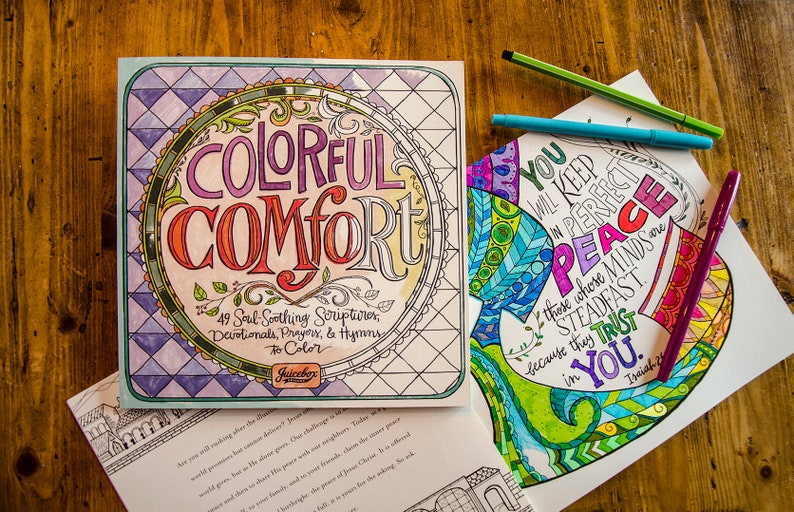 COLORFUL
COMfoRt
49 Soul-Soothing Scriptures,
Devotionals, Prayers, & Hymns
to Color
Juicebox
DESIGNS
YOU
WILL KEEP
IN PERFECT
PEACE
those whose MINDS are
STEADFAST,
because they TRUST
in YOU.
Isaiah 26
Are you still rushing after the illusi
world promises but cannot deliver? Jesus
world gives, but as He alone gives. Our challenge is to
peace and then to share His peace with our neighbors. Today, as a
to your family, and to your friends, claim the inner peace
birthright: the peace of Jesus Christ. It is offered
full; it is yours for the asking. So ask